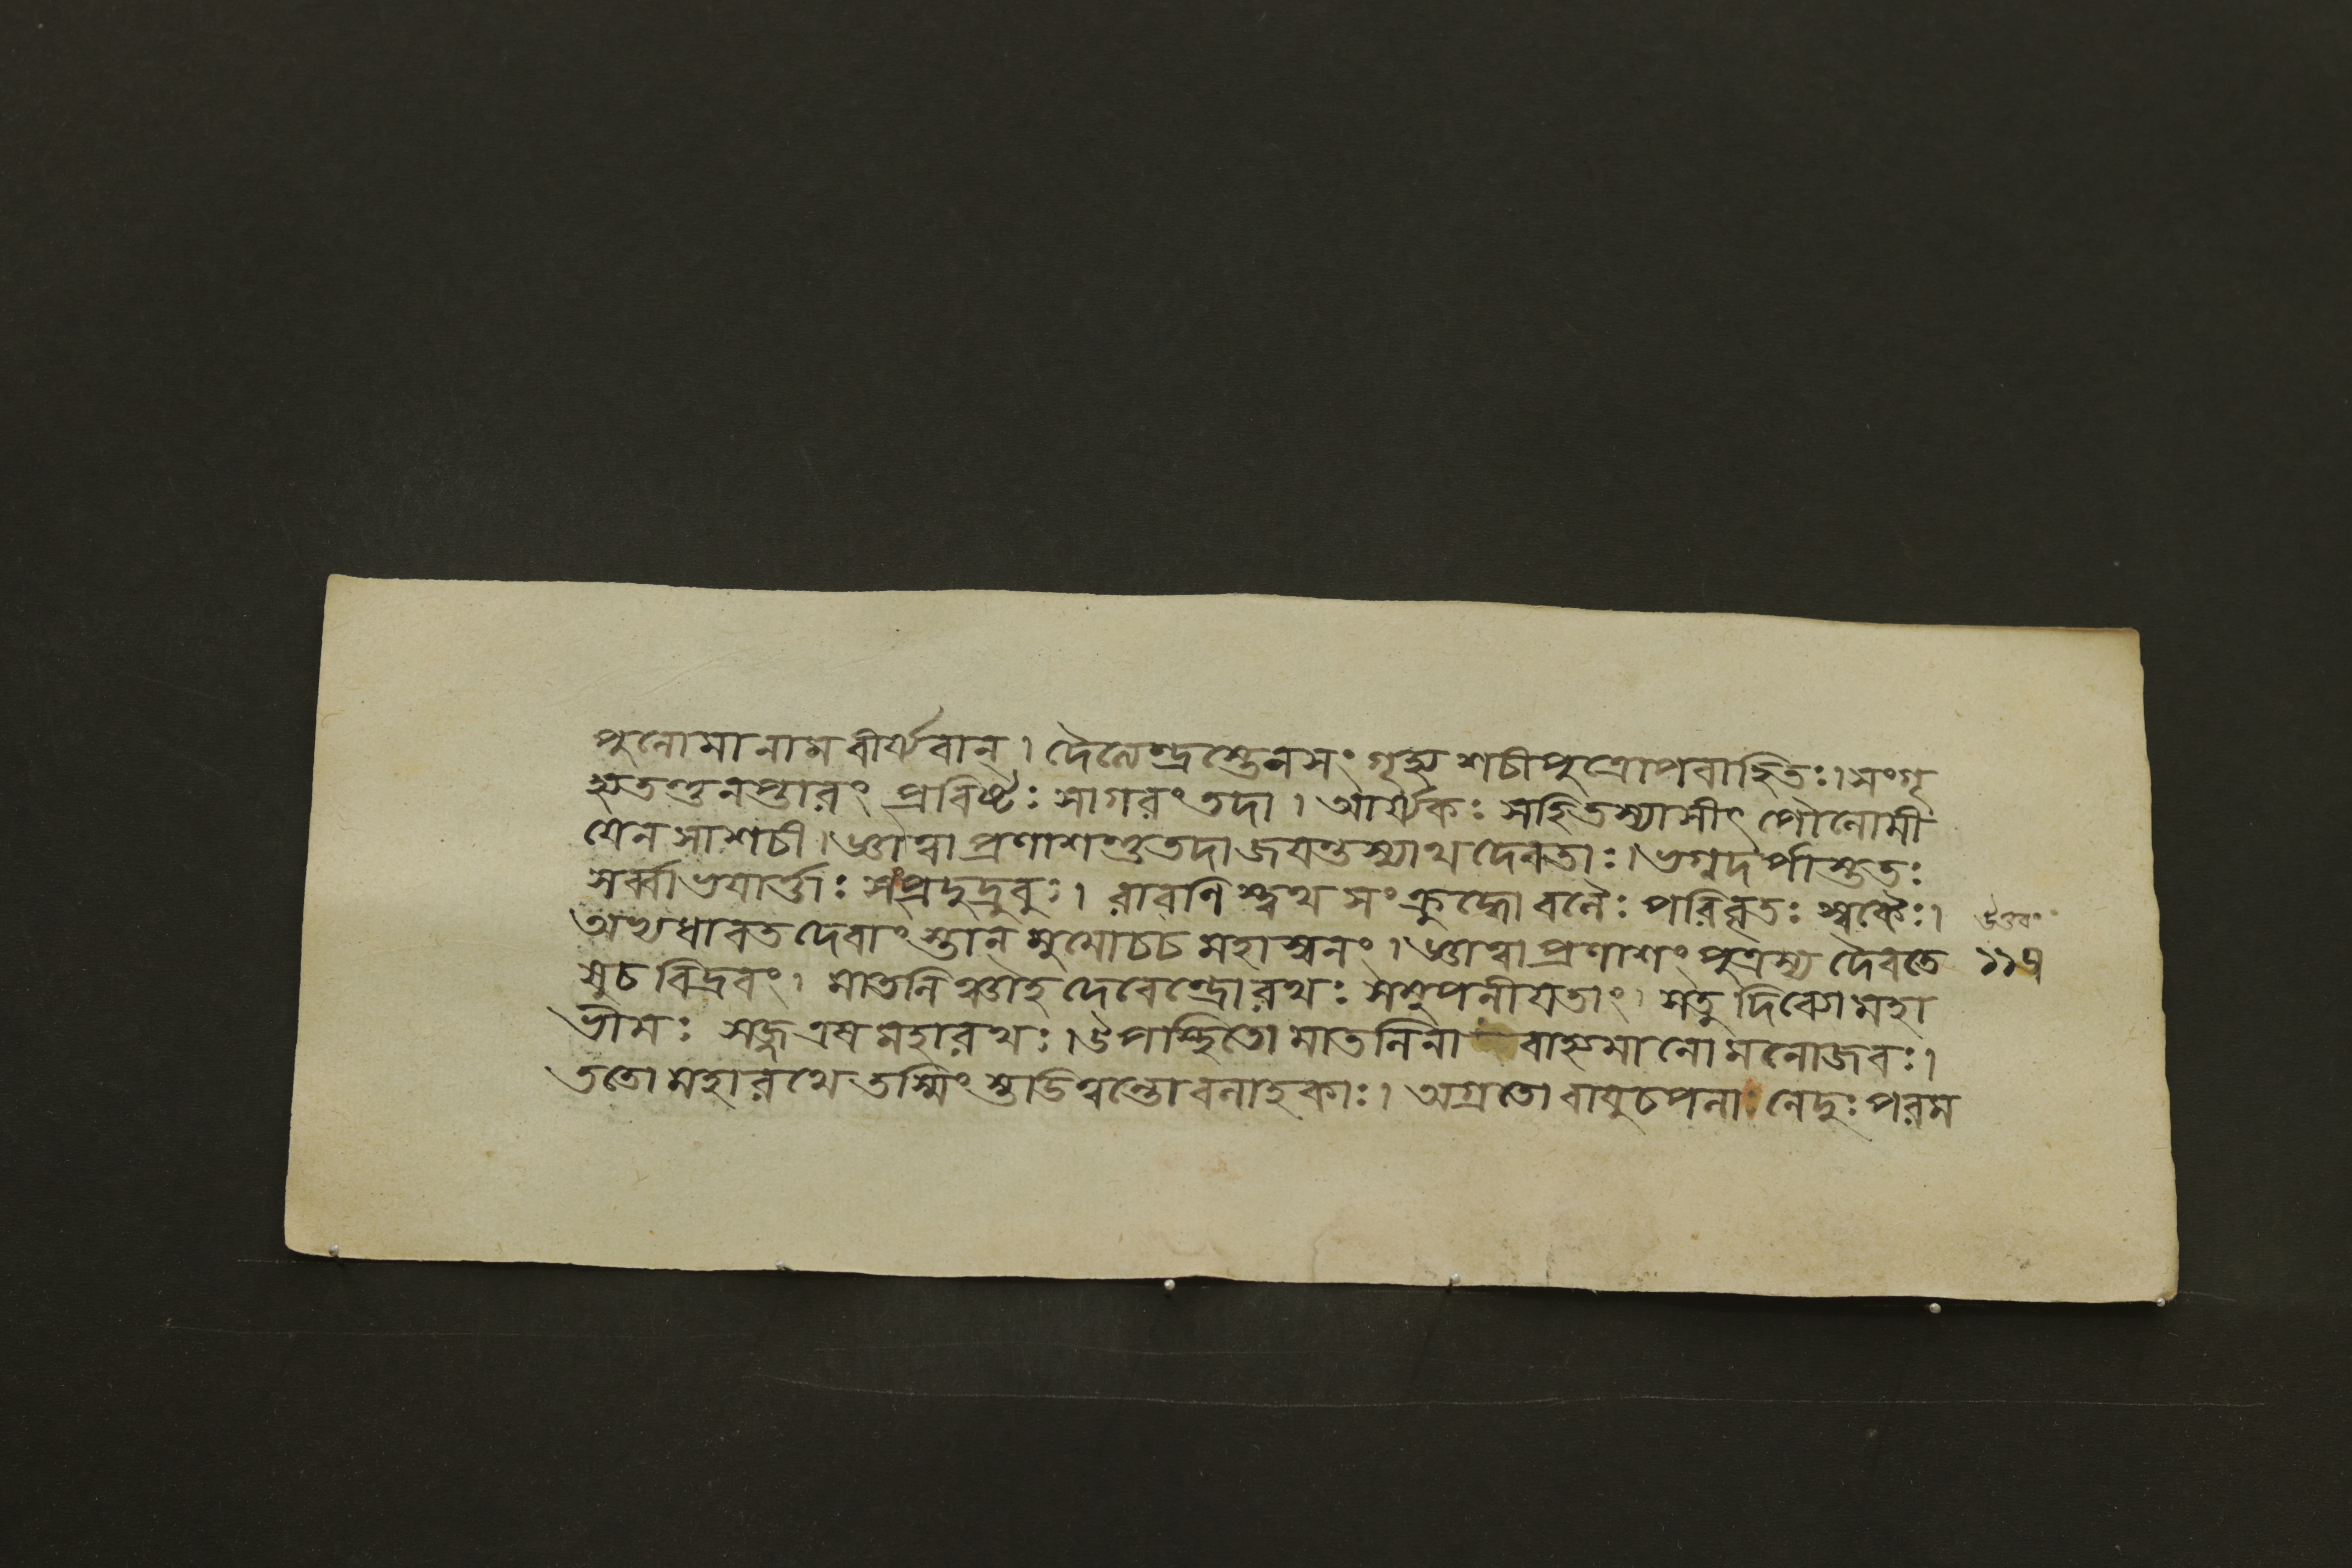 পুলোমা নাম বীর্য্যবান্। দৈত্যেন্দ্রস্তেন সংগৃহ্য শচীপুত্রোপবাহিতঃ। সংগৃ
হ্য তন্তু নপ্তারং প্রবিষ্টঃ সাগরং তদা। আর্য্যকঃ স হি তস্যাসীৎ পৌলোমী
যেন সা শচী। জ্ঞাত্বা প্রণাশন্তু তদা জয়ন্তস্যাথ দেবতাঃ। ভগ্নদর্পাস্ততঃ
সর্ব্বা ভয়ার্ত্তাঃ সংপ্রদুদ্রুবুঃ। রাবণিস্ত্বথ সংক্রুদ্ধো বলৈঃ পরিবৃতঃ স্বকৈঃ।
অভ্যধাবত দেবাংস্তান্ মুমোচ চ মহাস্বনং। জ্ঞাত্বা প্রণাশং পুত্রস্য দৈবতে
ষু চ বিদ্রবং। মাতলিঞ্চাহ দেবেন্দ্রো রথঃ সমুপনীয়তাং। স তু দিব্যো মহা
ভীমঃ সজ্জ এব মহারথঃ। উপস্থিতো মাতলিনা বাহ্যমানো মনোজবঃ।
ততো মহারথে তস্মিংস্তাডিত্বন্তো বলাহকাঃ। অগ্রতো বায়ুচপলা নেদুঃ পরম
উত্তরা
১১৭